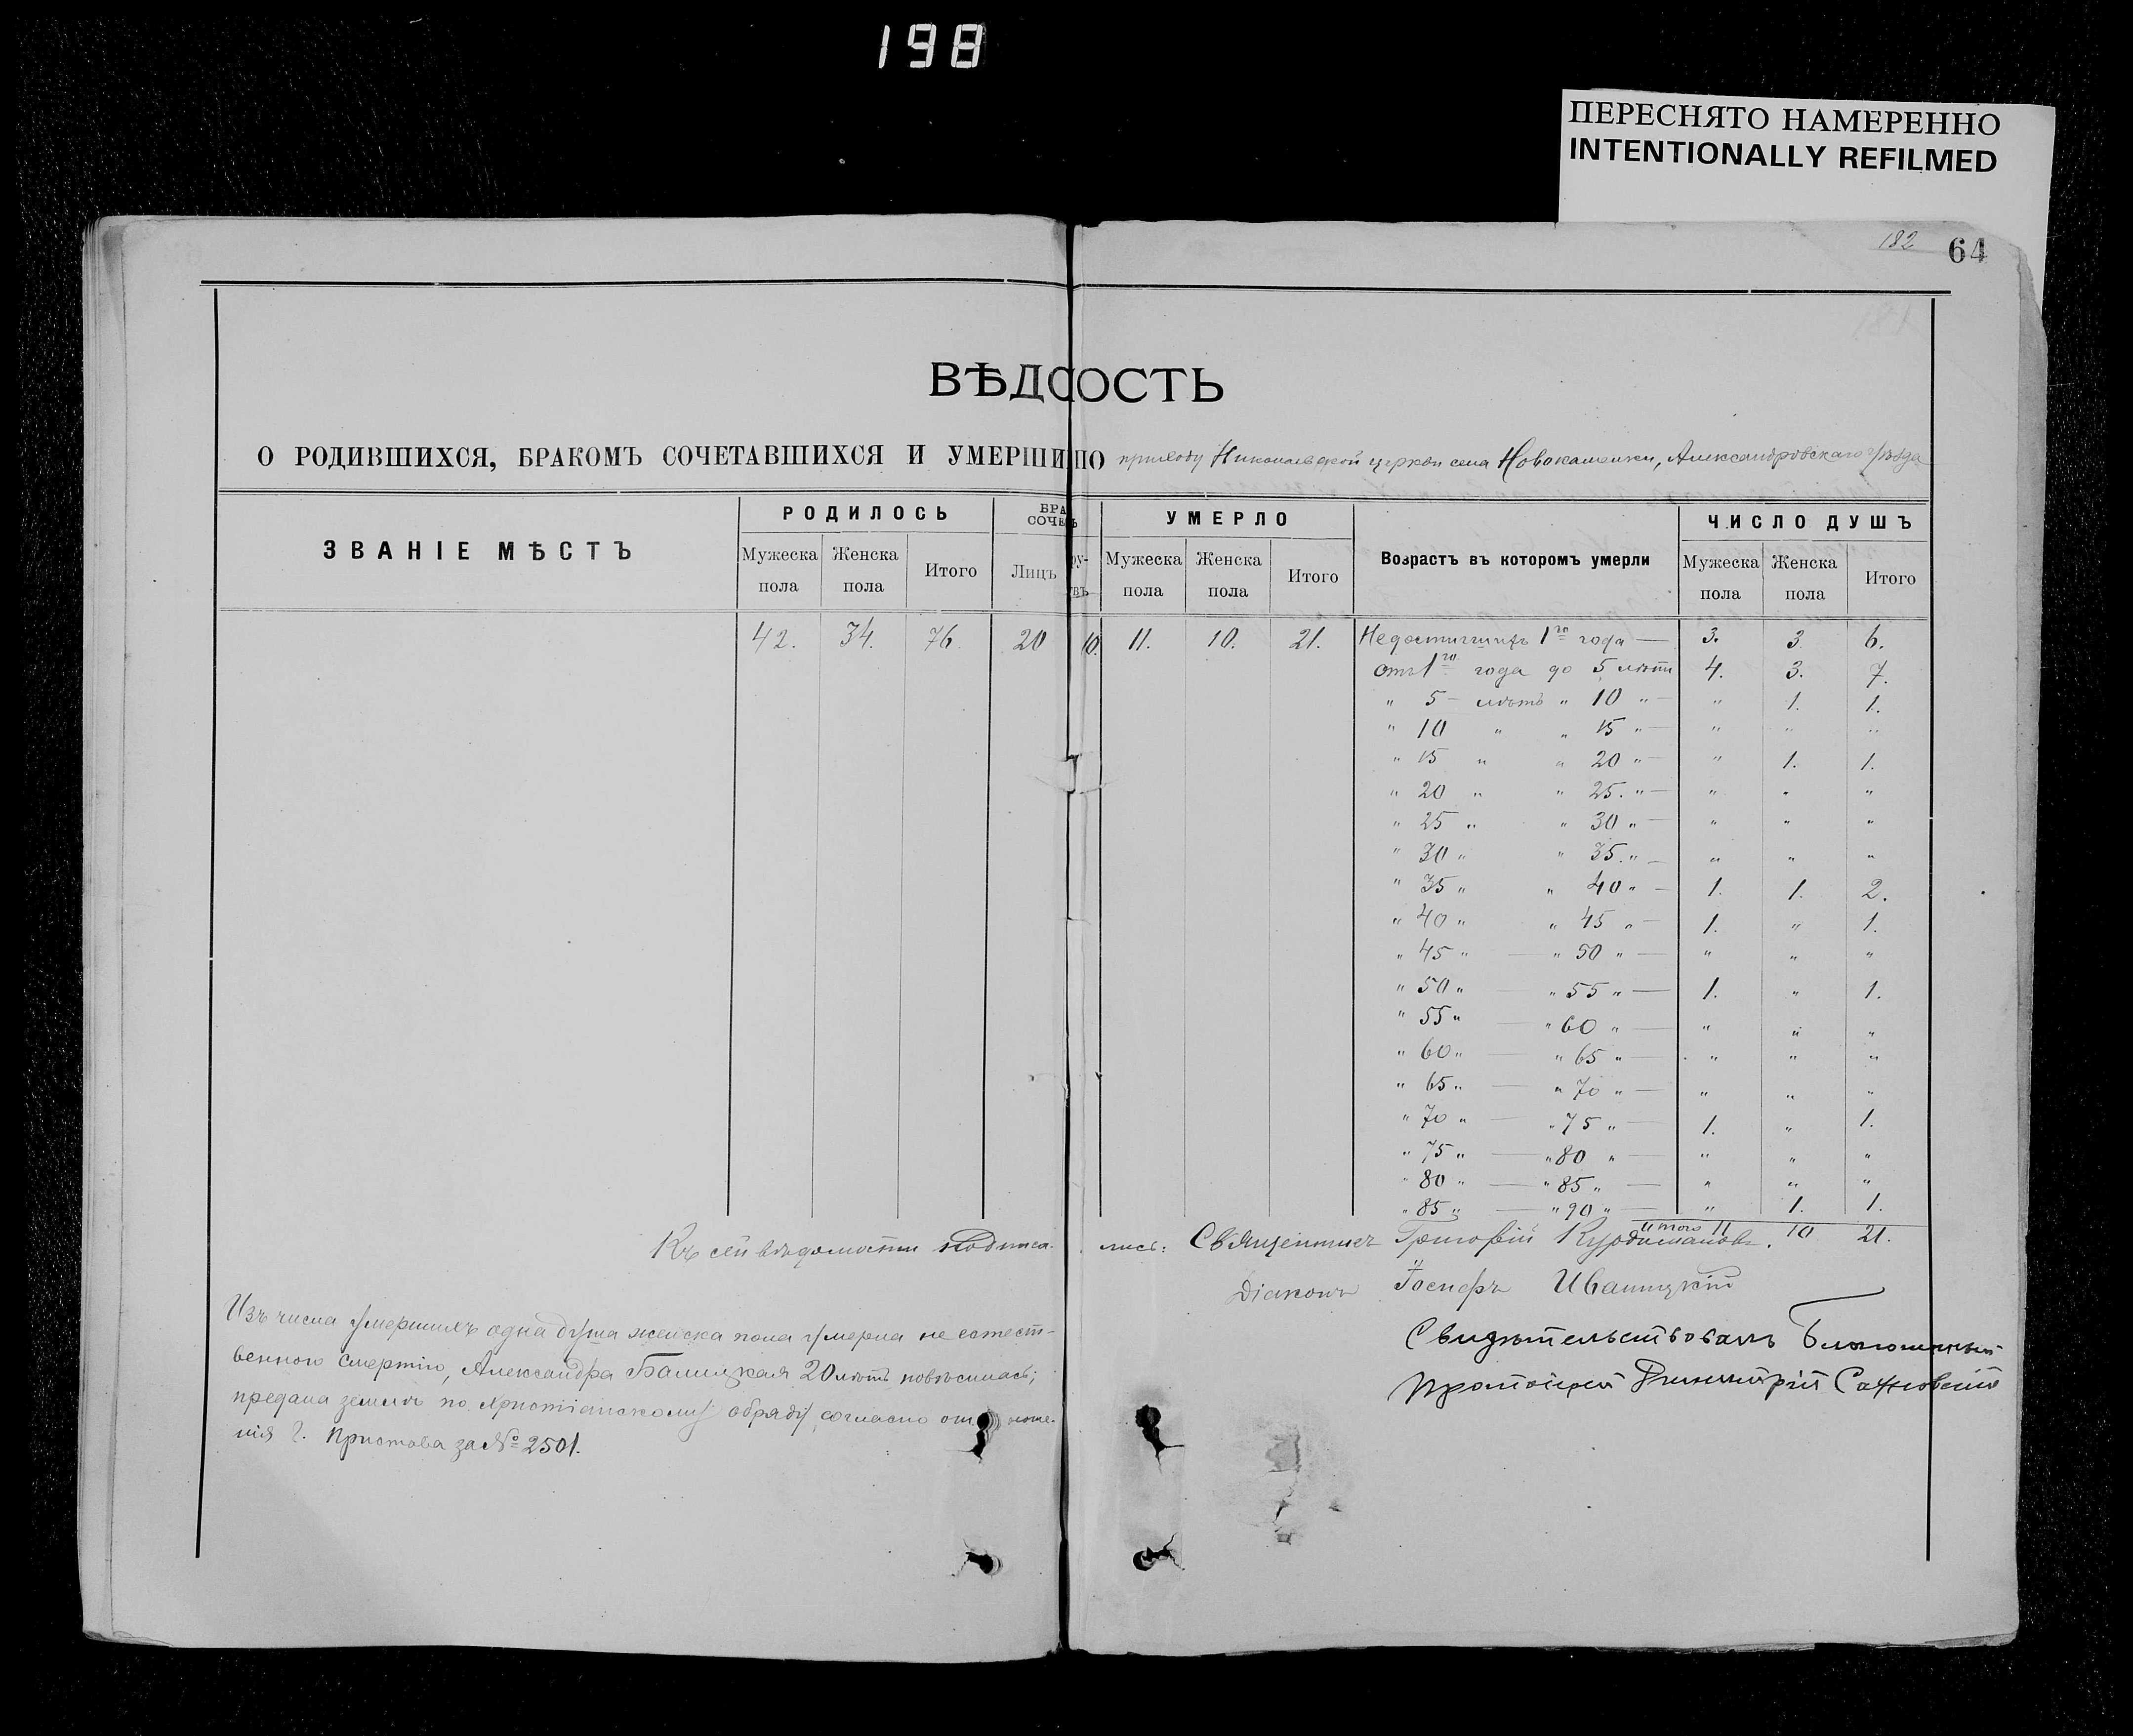 198
ПЕРЕСНЯТО НАМЕРЕННО
INTENTIONALLY REFILMED
182 64
181
ВѢДО ОСТЬ
О РОДИВШИХСЯ, БРАКОМЪ СОЧЕТАВШИХСЯ И УМЕРШИ ПО приходу Николаевской церкви села Новокаменки, Александровскаго уѣзда
ЗВАНІЕ МѢСТЪ
РОДИЛОСЬ
Мужеска пола
Женска пола
Итого
БРА
СОЧЕ
Лицъ
УМЕРЛО
Мужеска пола
Женска пола
Итого
Возрастъ въ которомъ умерли
ЧИСЛО ДУШЪ
Мужеска пола
Женска пола
Итого
42. 34. 76 20 10. 11. 10. 21. Недостигшихъ 1го года — 3. 3 6.
отъ 1го года до 5 лѣтъ 4. 3. 7.
" 5 — лѣтъ " 10 " — " 1. 1.
" 10 " " 15 " — " " "
" 15 " " 20 " — " 1. 1.
" 20 " " 25. " — " " "
" 25 " " 30 " — " " "
" 30 " " 35. " — " " "
" 35 " " 40 " — 1. 1. 2.
" 40 " " 45 " — 1. " 1.
" 45 " — " 50 " — " " "
" 50 " — " 55 " — 1. " 1.
" 55 " — " 60 " — " " "
" 60 " — " 65 " — " " "
" 65 " — " 70 " — " " "
" 70 " — " 75 " — 1. " 1.
" 75 " — " 80 " — " " "
" 80 " — " 85 " — " " "
" 85 " — " 90 " — " 1. 1.
итого 11 10 21.
Къ сей вѣдомости подписа- лись: Священникъ Григорій Курдимановъ.
Діаконъ Іосифъ Иваницкій
Свидѣтельствовалъ Благочинный
Протоіерей Димитрій
Изъ числа умершихъ одна душа женска пола умерла не естест-
венною смертію, Александра Балицкая 20 лѣтъ повѣсилась;
предана землѣ по христіанскому обряду, согласно от ноше-
нія г. Пристава за № 2501.